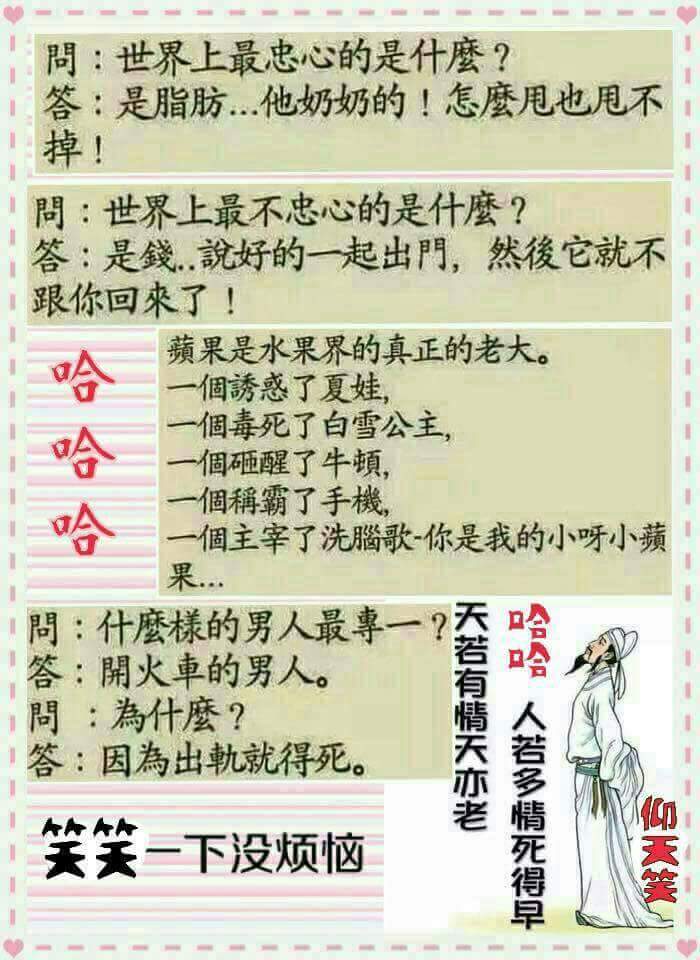 問：世界上最忠心的是什麼？
答：是脂肪...他奶奶的！怎麼甩也甩不
掉！
問：世界上最不忠心的是什麼？
答：是錢..說好的一起出門，然後它就不
跟你回來了！
哈
哈
哈
蘋果是水果界的真正的老大。
一個誘惑了夏娃,
一個毒死了白雪公主,
一個砸醒了牛頓,
一個稱霸了手機,
一個主宰了洗腦歌-你是我的小呀小蘋
果...
問：什麼樣的男人最專一？
答：開火車的男人。
問：為什麼？
答：因為出軌就得死。
天若有情天亦老
哈哈
人若多情死得早
仰天笑
笑笑一下没烦恼